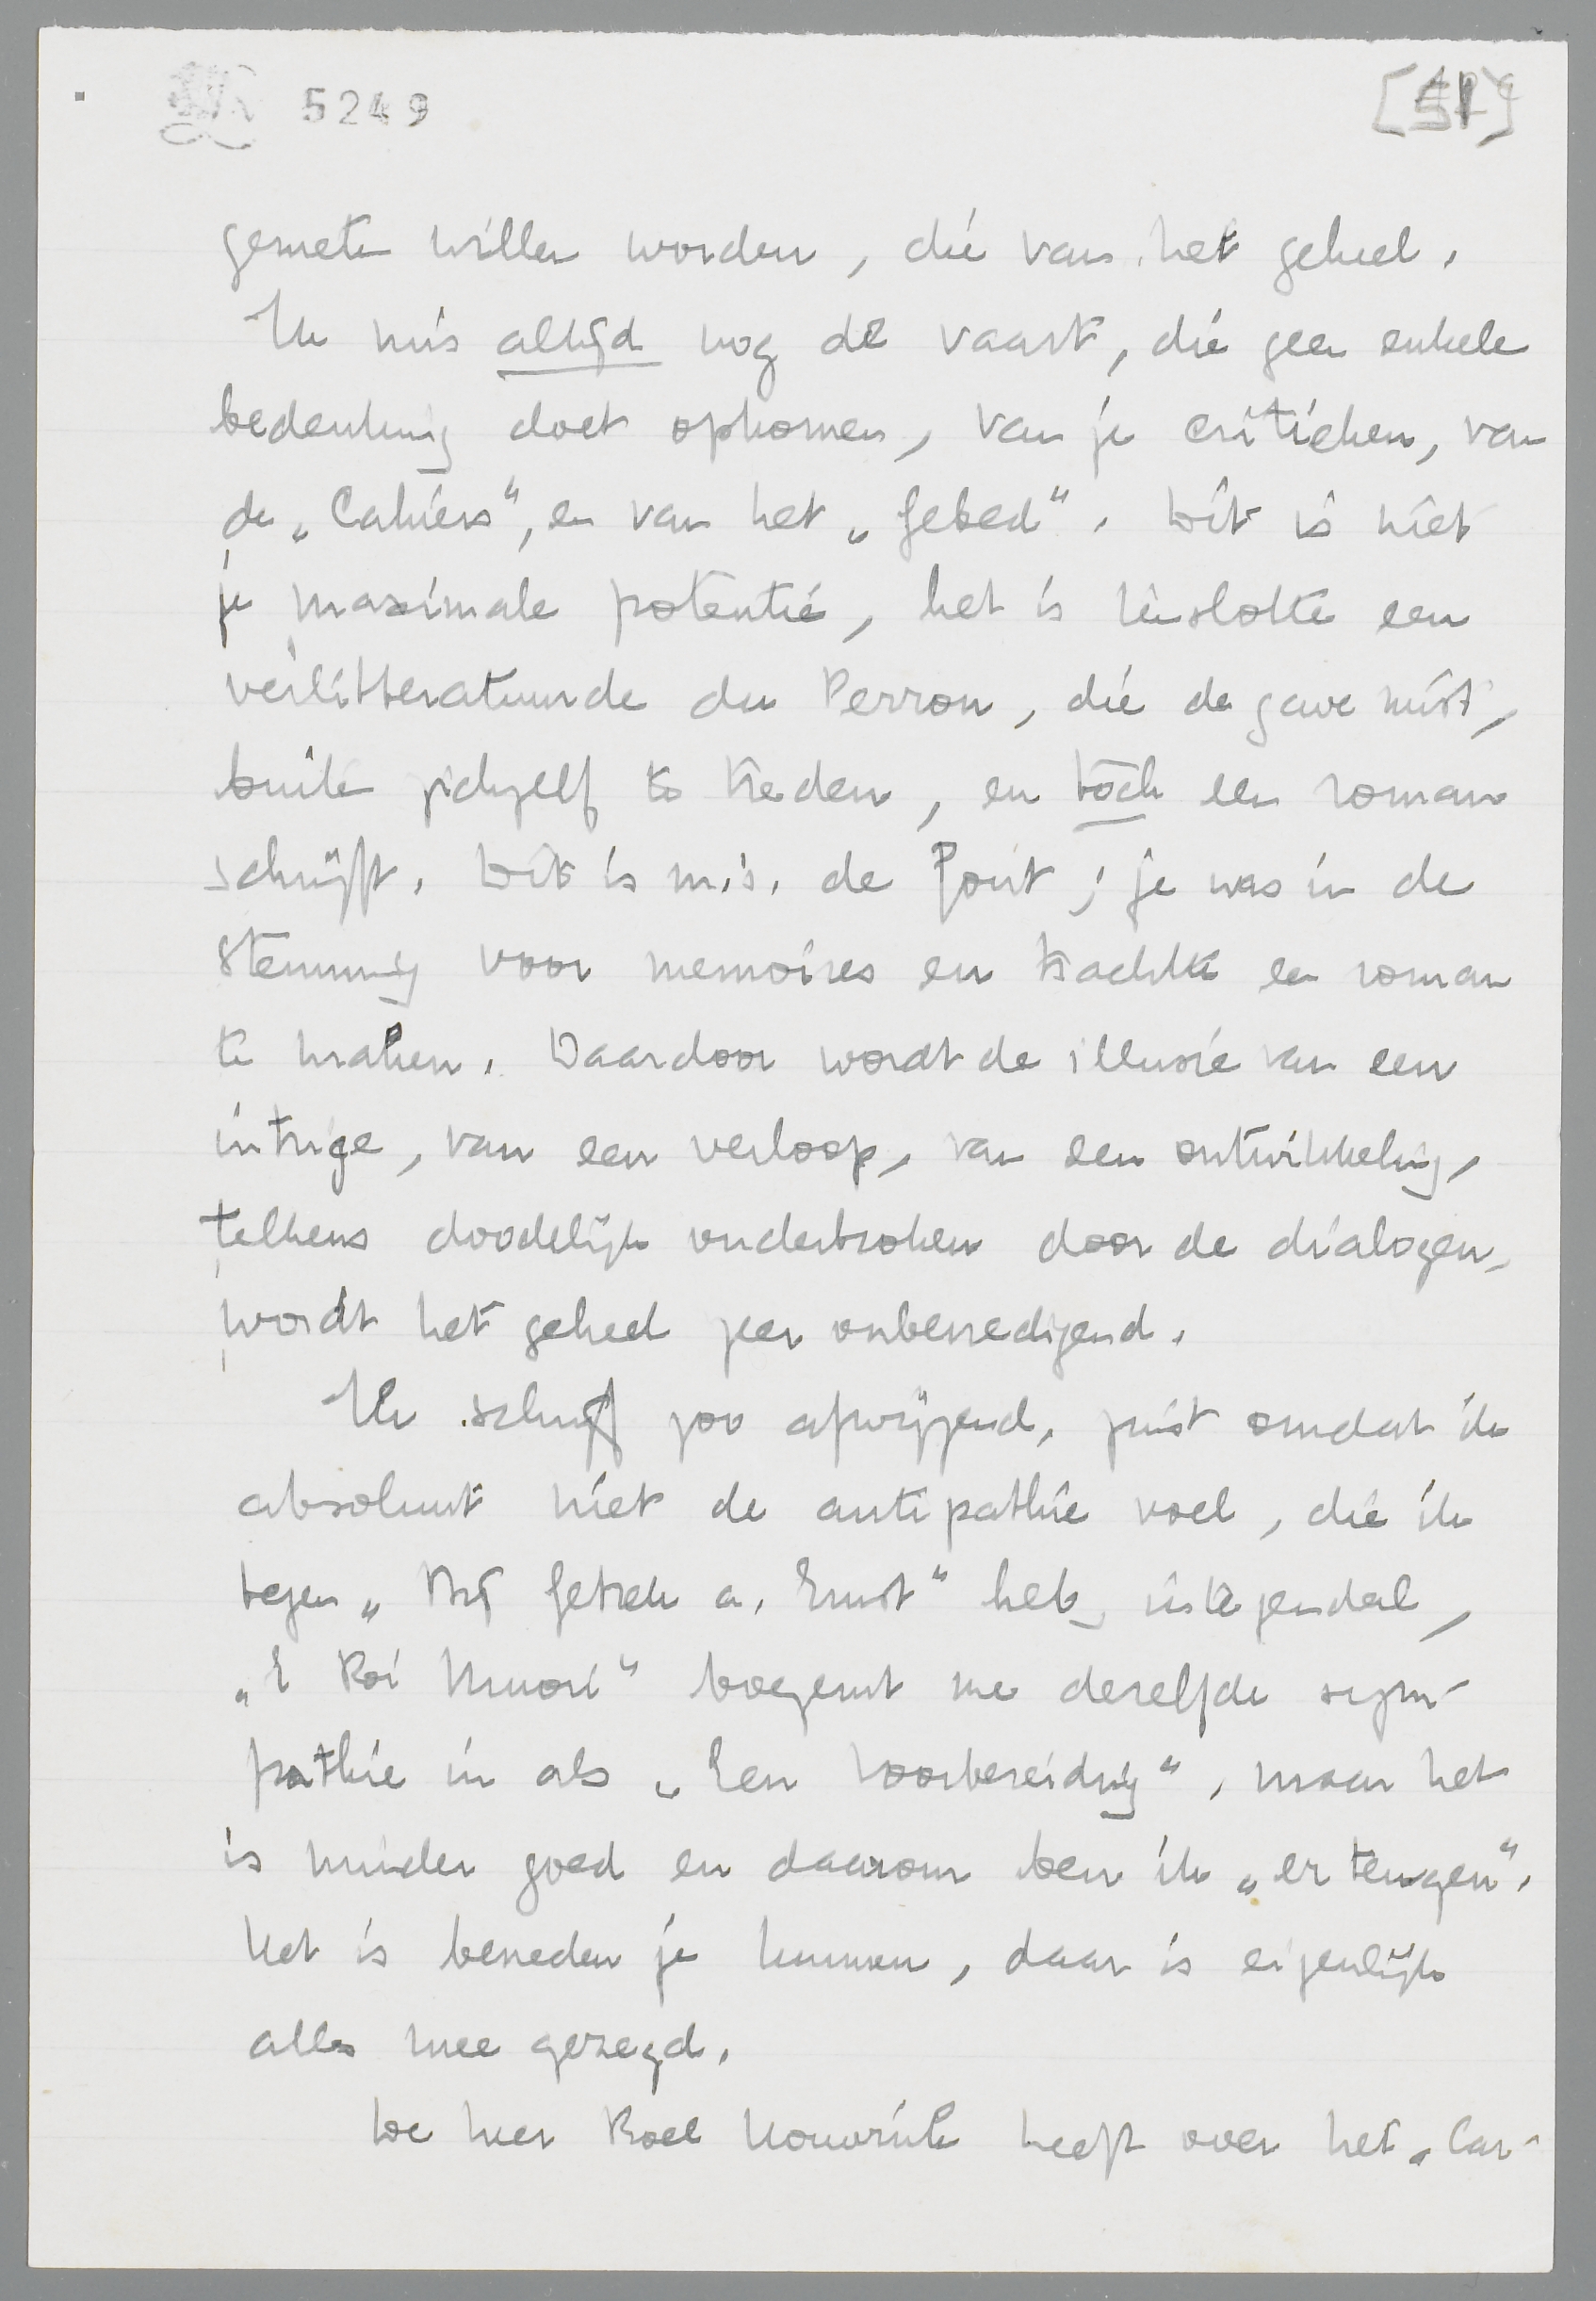 5249
gemeten willen worden, die van het geheel.
Ik mis altijd nog de vaart, die geen enkele
bedenking doet opkomen, van je critieken, van
de „Cahiers", en van het „Gebed". Dit is niet
je maximale potentie, het is tenslotte een
verlitteratuurde du Perron, die de gave mist,
buiten zichzelf te treden, en tòch een roman
schrijft. Dit is m.i. de fout; je was in de
stemming voor memoires en trachtte een roman
te maken. Daardoor wordt de illusie van een
intrige, van een verloop, van een ontwikkeling,
telkens doodelijk onderbroken door de dialogen,
wordt het geheel zeer onbevredigend.
Ik schrijf zoo afwijzend, juist omdat ik
absoluut niet de antipathie voel, die ik
tegen „Bij Gebrek a. Ernst" heb, integendeel,
„E Poi Muori" boezemt me dezelfde sym-
pathie in als „Een Voorbereiding", maar het
is minder goed en daarom ben ik „er teugen".
Het is beneden je kunnen, daar is eigenlijk
alles mee gezegd.
De heer Roel Houwink heeft over het „Car-